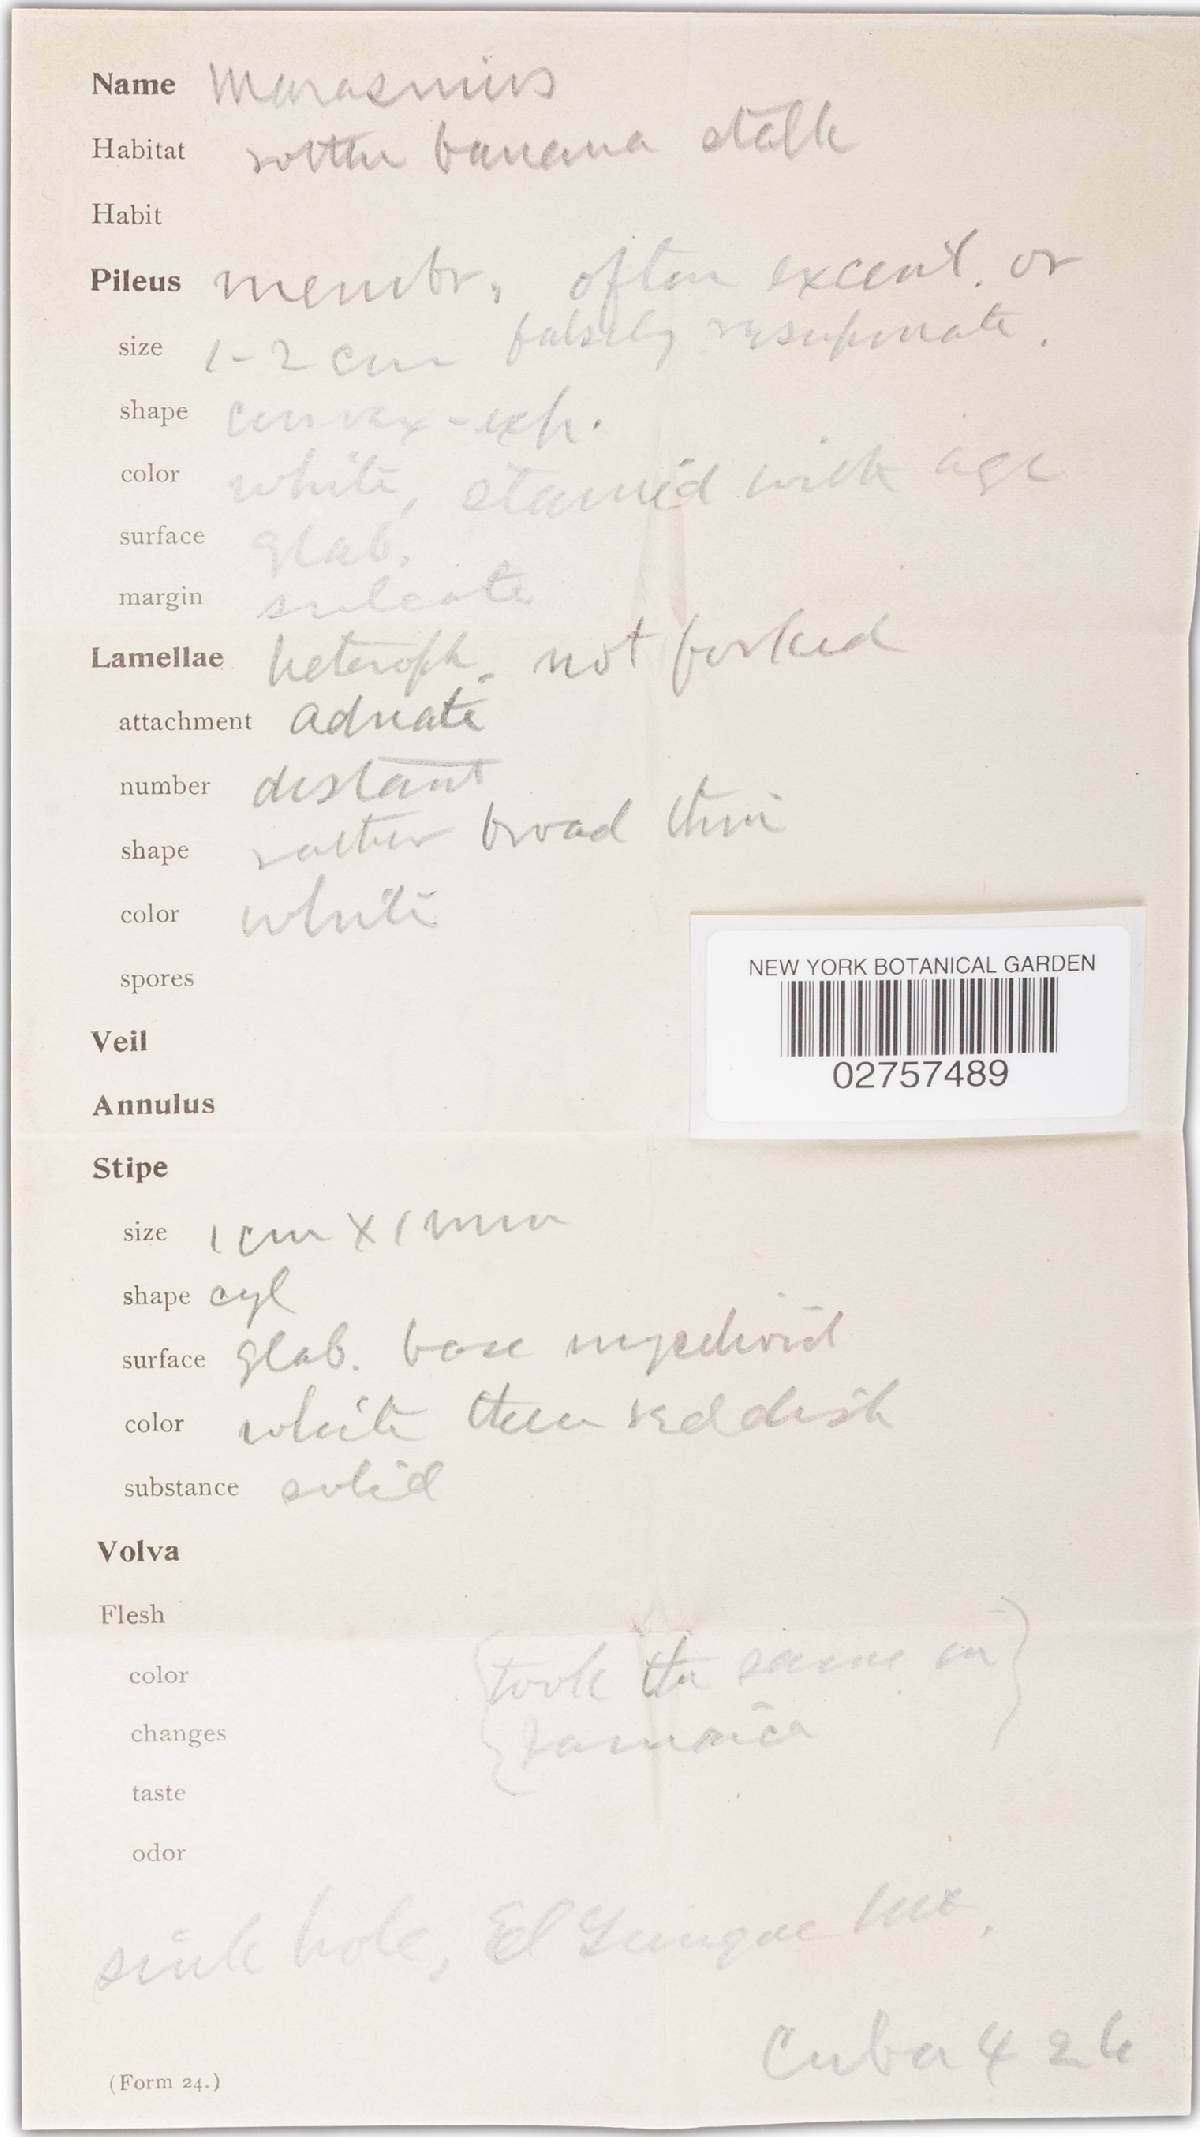 Name Marasmius
Habitat rotten banana stalk
Habit
Pileus membr., often excent. or
falsely resupinate.
size 1-2 cm
shape convex-exp.
color white, stained with age
surface glab.
margin sulcate
Lamellae heteroph. not forked
attachment adnate
number distant
shape rather broad thin
color white
spores
NEW YORK BOTANICAL GARDEN
02757489
Veil
Annulus
Stipe
size 1 cm x 1 mm
shape cyl
surface glab. base mycelioid
color white then reddish
substance solid
Volva
Flesh
color
took the same in
changes
Jamaica
taste
odor
sink hole, El Yunque Mt.
Cuba 426
(Form 24.)